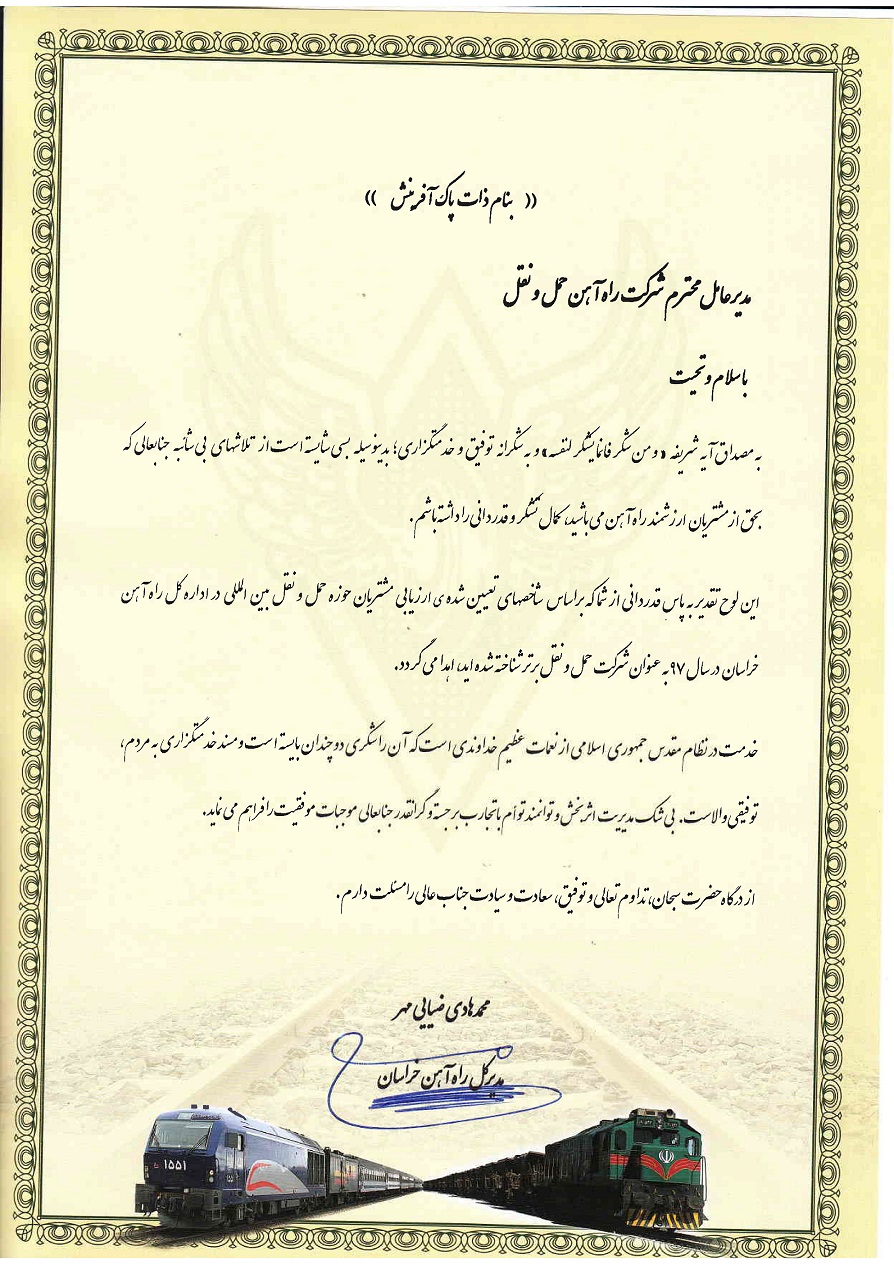 (( بنام ذات پاک آفرینش ))
مدیرعامل محترم شرکت راه آهن حمل و نقل
باسلام و تحیت
به مصداق آیه شریفه «و من شکر فانما یشکر لنفسه» و به شکرانه توفیق و خدمتگزاری؛ بدینوسیله بسی شایسته است از تلاشهای بی شائبه جنابعالی که
بحق از مشتریان ارزشمند راه آهن می باشید، کمال تشکر و قدردانی را داشته باشم.
این لوح تقدیر به پاس قدردانی از شما که براساس شاخصهای تعیین شده ی ارزیابی مشتریان حوزه حمل و نقل بین المللی در اداره کل راه آهن
خراسان در سال ۹۷ به عنوان شرکت حمل و نقل برتر شناخته شده اید، اهدا می گردد.
خدمت در نظام مقدس جمهوری اسلامی از نعمات عظیم خداوندی است که آن را شکری دو چندان بایسته است و مسند خدمتگزاری به مردم،
توفیقی والاست. بی شک مدیریت اثربخش و توانمند توأم با تجارب برجسته و گرانقدر جنابعالی موجبات موفقیت را فراهم می نماید.
از درگاه حضرت سبحان، تداوم تعالی و توفیق، سعادت و سیادت جناب عالی را مسئلت دارم.
محمدهادی ضیایی مهر
مدیرکل راه آهن خراسان
۱۵۵۱